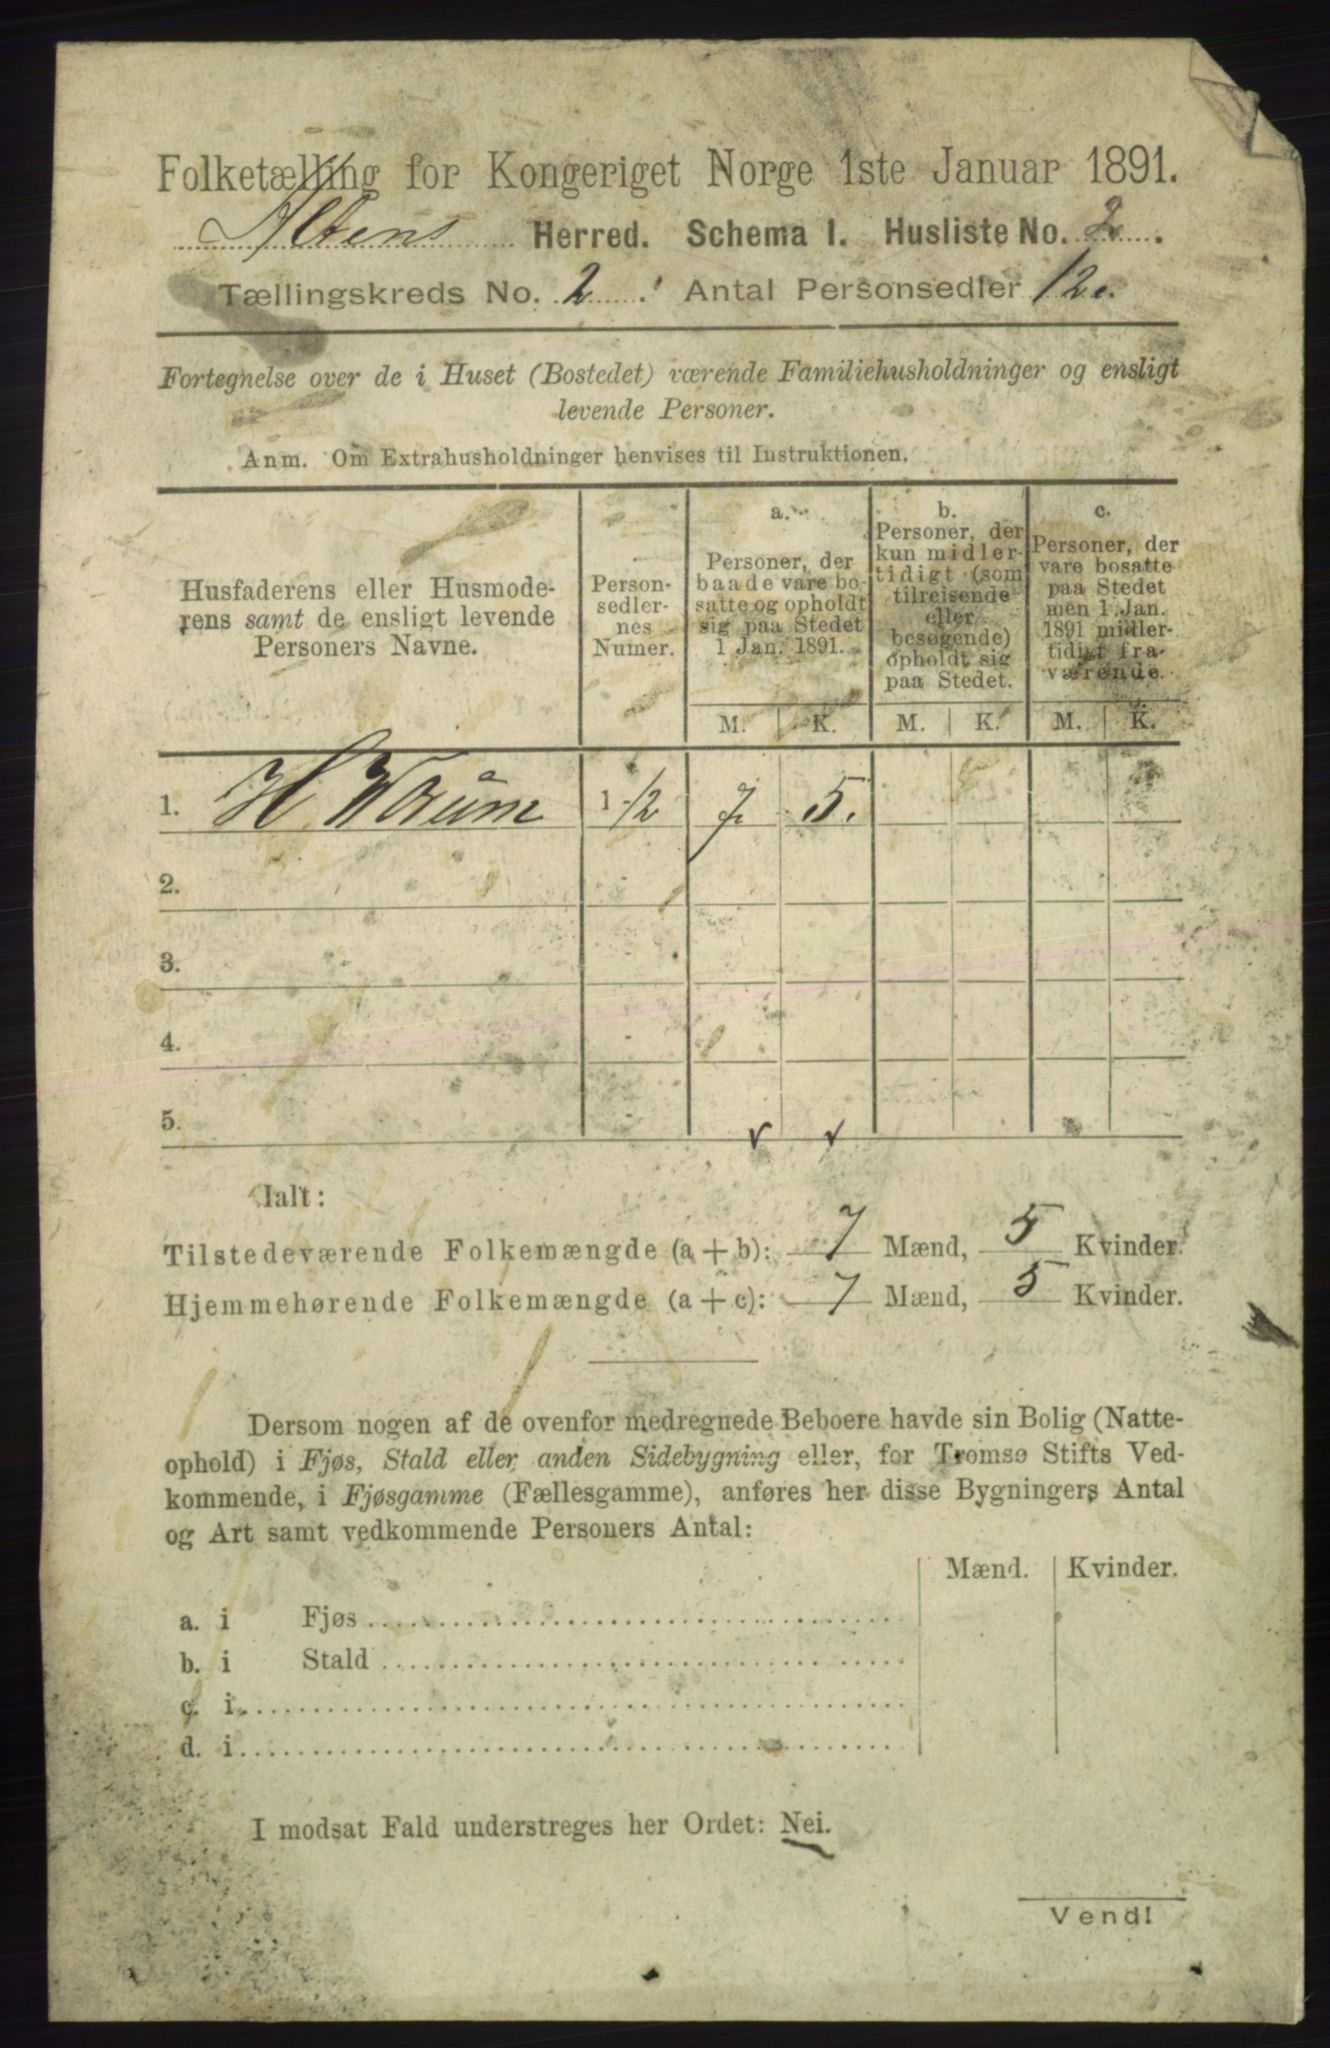 Folketælling for Kongeriget Norge 1ste Januar 1891.
Altens Herred. Schema I. Husliste No. 2.
Tællingskreds No. 2. Antal Personsedler 12.
Fortegnelse over de i Huset (Bostedet) værende Familiehusholdninger og ensligt
levende Personer.
Anm. Om Extrahusholdninger henvises til Instruktionen.
Husfaderens eller Husmode-
rens samt de ensligt levende
Personers Navne.
Person-
sedler-
nes
Numer.
a.
Personer, der
baade vare bo-
satte og opholdt
sig paa Stedet
1 Jan. 1891.
b.
Personer, der
kun midler-
tidigt (som
tilreisende
eller
besøgende)
opholdt sig
paa Stedet.
c.
Personer, der
vare bosatte
paa Stedet
men 1 Jan.
1891 midler-
tidigt fra-
værende.
M. K. M. K. M. K.
1. H 1-12 7. 5.
2. -
3. -
4. -
5. -
Ialt:
Tilstedeværende Folkemængde (a + b): 7 Mænd, 5 Kvinder.
Hjemmehørende Folkemængde (a + c): 7 Mænd, 5 Kvinder.
Dersom nogen af de ovenfor medregnede Beboere havde sin Bolig (Natte-
ophold) i Fjøs, Stald eller anden Sidebygning eller, for Tromsø Stifts Ved-
kommende, i Fjøsgamme (Fællesgamme), anføres her disse Bygningers Antal
og Art samt vedkommende Personers Antal:
Mænd. Kvinder.
a. i Fjøs
b. i Stald
c. i
d. i
I modsat Fald understreges her Ordet: Nei.
Vend!